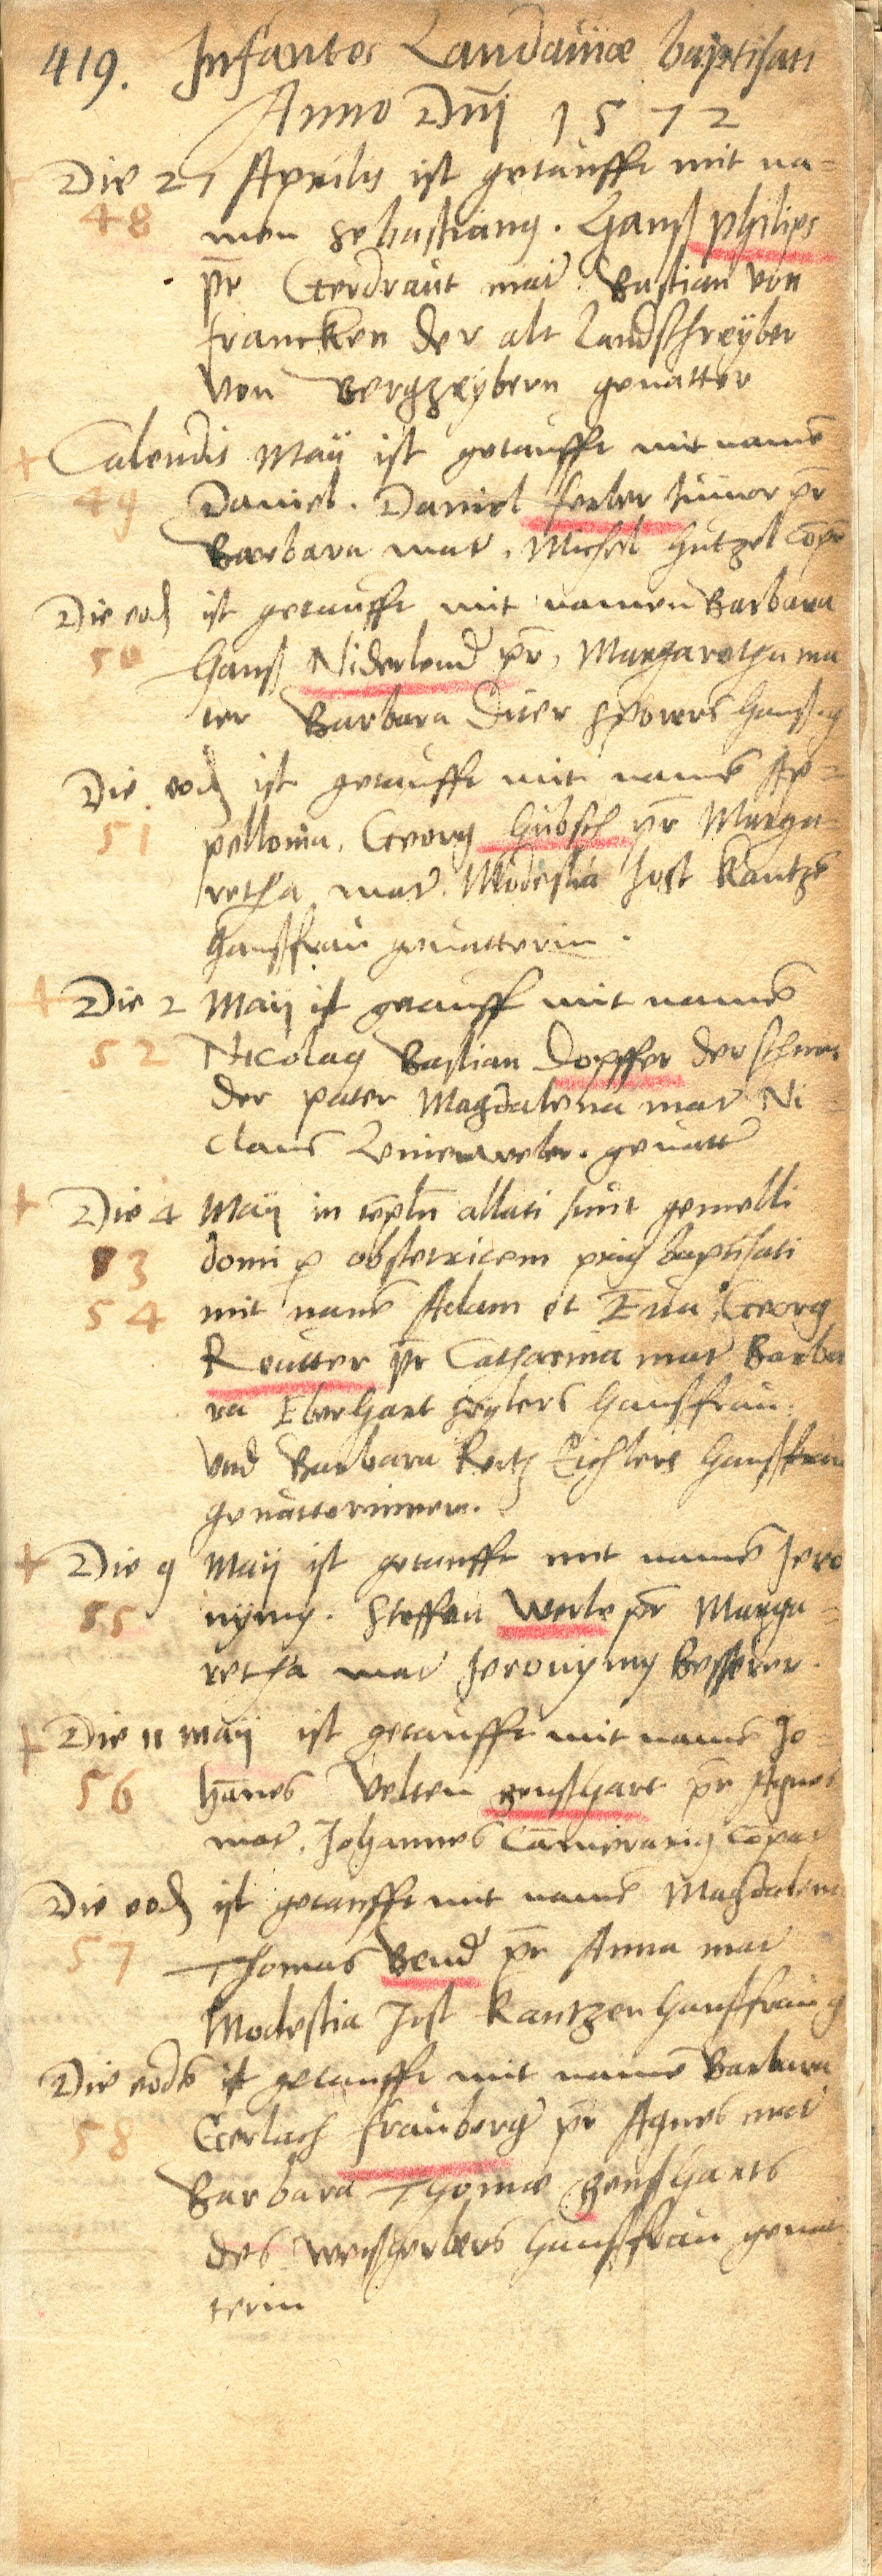 419. Infantes Landauiæ baptisati
Anno Dnj 1572
Die 27 Aprilis ist getaufft mit na-
48 men Sebastianus. Hanß Philips
pr Gerdraut mat Bastian von
francken der alt Landschreyber
von Bergzeybern geuatter
Calendis Maij ist getaufft mit name
49 Daniel. Daniel feeler Junior pr
Barbara mat. Michel Hutzel Cōpr
Die eod ist getaufft mit namen Barbara
50 Hanß Niderlend pr, Margaretha ma
ter Barbara Hanß
Die eod ist getaufft mit name Ap-
51 pellonia. Georg Hubsch pr Marga-
retha mat. Modestia Jost Kantze
Haußfrau geuatterin.
Die 2 Maij ist getauff mit name
52 Nicolaus Bastian Dopffer der schnei
der pater Magdalena mat Ni-
claus geuatt
Die 4 Maij in tēplū allati sunt gemelli
53 domi p obstetricem prius baptisati
54 mit name Adam et Eua, Georg
Reutter pr Catharina mat Barba
ra Eberhart Seylers Haußfrau.
vnd Barbara Haußfrau
geuatterinnen.
Die 9 Maij ist getaufft mit name Jero
55 nymus. Steffan Werle pr Marga-
retha mat Jeronymus Besserer.
Die 11 maij ist getaufft mit name Jo-
56 hānes Velten genßhart pr Agnes
mat. Johannes Camerarius cōpat
Die eod ist getaufft mit name Magdalena
57 Thomas Bend pr Anna mat
Modestia Jost Kantzen Haußfrau g
Die eode ist getaufft mit name Barbara
58 Gerlach frauberg pr Agnes mat
Barbara Thomæ Genßharts
des weißgerbers Haußfrau geuat
terin